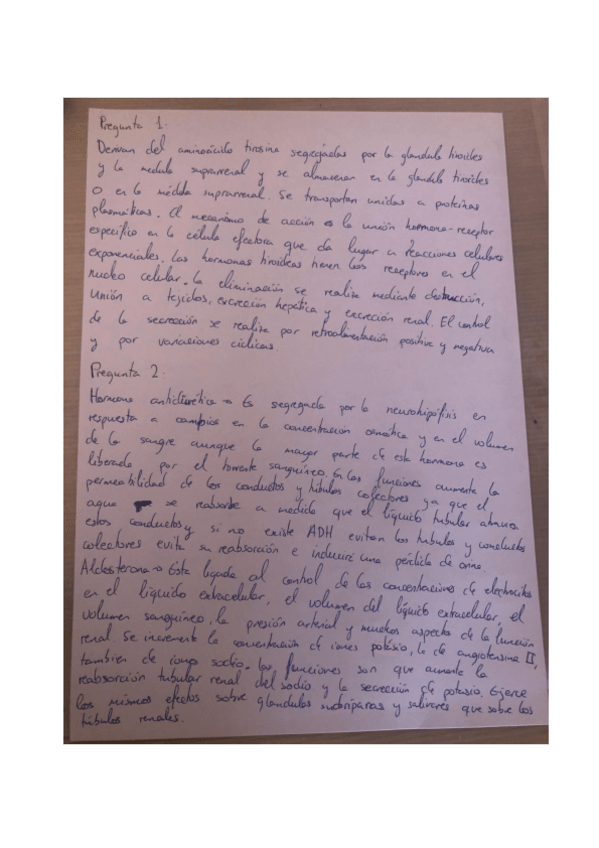 Pregunta 1:
Derivan del aminoácido tirosina segregadas por la glandula tiroides
y la medula suprarrenal y se almacenan en la glandula tiroides
o en la médula suprarrenal. Se transportan unidas a proteínas
plasmáticas. El mecanismo de acción es la unión hormona-receptor
específico en la célula efectora que da lugar a reacciones celulares
exponenciales. Las hormonas tiroideas tienen los receptores en el
nucleo celular. La eliminación se realiza mediante destrucción,
unión a tejidos, excreción hepática y excreción renal. El control
de la secreción se realiza por retroalimentación positiva y negativa
y por variaciones cíclicas.
Pregunta 2:
Hormona antidiurética → Es segregada por la neurohipófisis en
respuesta a cambios en la concentracion osmótica y en el volumen
de la sangre aunque la mayor parte de esta hormona es
liberada por el torrente sanguíneo. En las funciones aumenta la
permeabilidad de los conductos y túbulos colectores ya que el
agua se reabsorbe a medida que el líquido tubular atraviesa
estos conductos y si no existe ADH evitan los tubulos y conductos
colectores evita su reabsorción e inducirá una pérdida de orina.
Aldosterona → Esta ligada al control de las concentraciones de electrolitos
en el líquido extracelular, el volumen del líquido extracelular, el
volumen sanguíneo, la presión arterial y muchos aspectos de la función
renal. Se incrementa la concentración de iones potasio, la de angiotensina II,
tambien de iones sodio. Las funciones son que aumenta la
reabsorción tubular renal del sodio y la secreción de potasio. Ejerce
los mismos efectos sobre glandulas sudoríparas y salivares que sobre los
túbulos renales.